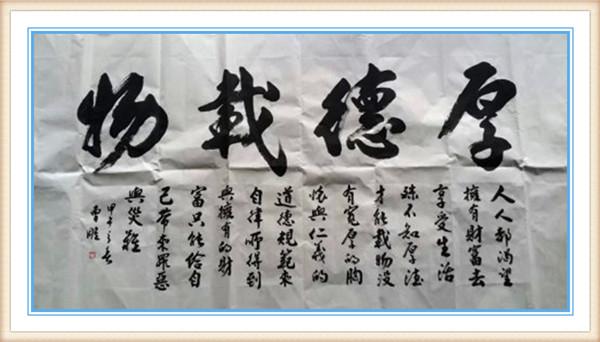 厚德載物
人人都渴望
擁有財富去
享受生活
殊不知厚德
才能載物沒
有寬厚的胸
懷與仁義的
道德規範來
自律所得到
與擁有的財
富只能給自
己帶來罪惡
與災難
甲午之春